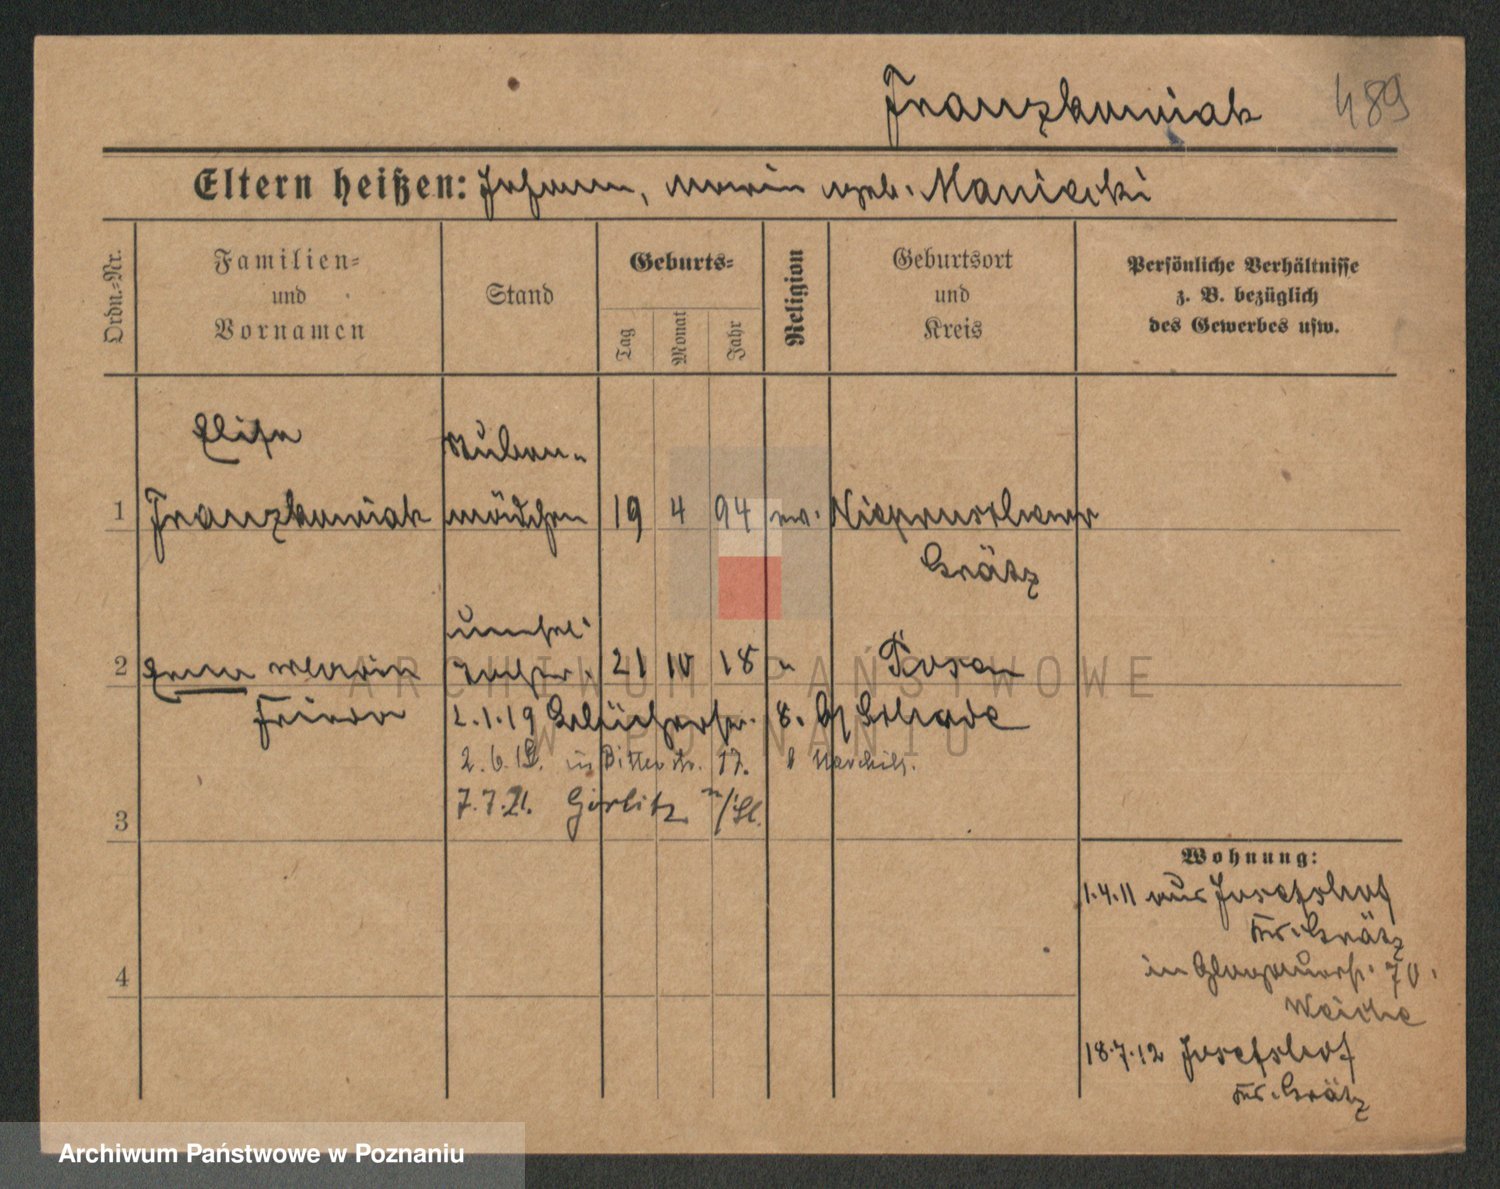 Franzkowiak 489
Eltern heißen: Johann, Marie geb. Maniecki
Ordn.-Nr.
Familien-
und
Vornamen
Stand
Geburts-
Tag
Monat
Jahr
Religion
Geburtsort
und
Kreis
Persönliche Verhältnisse
z. B. bezüglich
des Gewerbes usw.
Elise
Stuben-
1 Franzkowiak mädchen 19 4 94
Grätz
unehel.
2 Marie Tochter 21 10 18 " Posen
2.1.19 8.
2.6.19. in Ritterstr. 17. b
7.7.21. Görlitz
3
Wohnung:
1.4.11 aus Josefshof
Kr. Grätz
4
in Glogauerstr. 70.
18.7.12 Josefshof
Kr. Grätz
ARCHIWUM PAŃSTWOWE
W POZNANIU
Archiwum Państwowe w Poznaniu